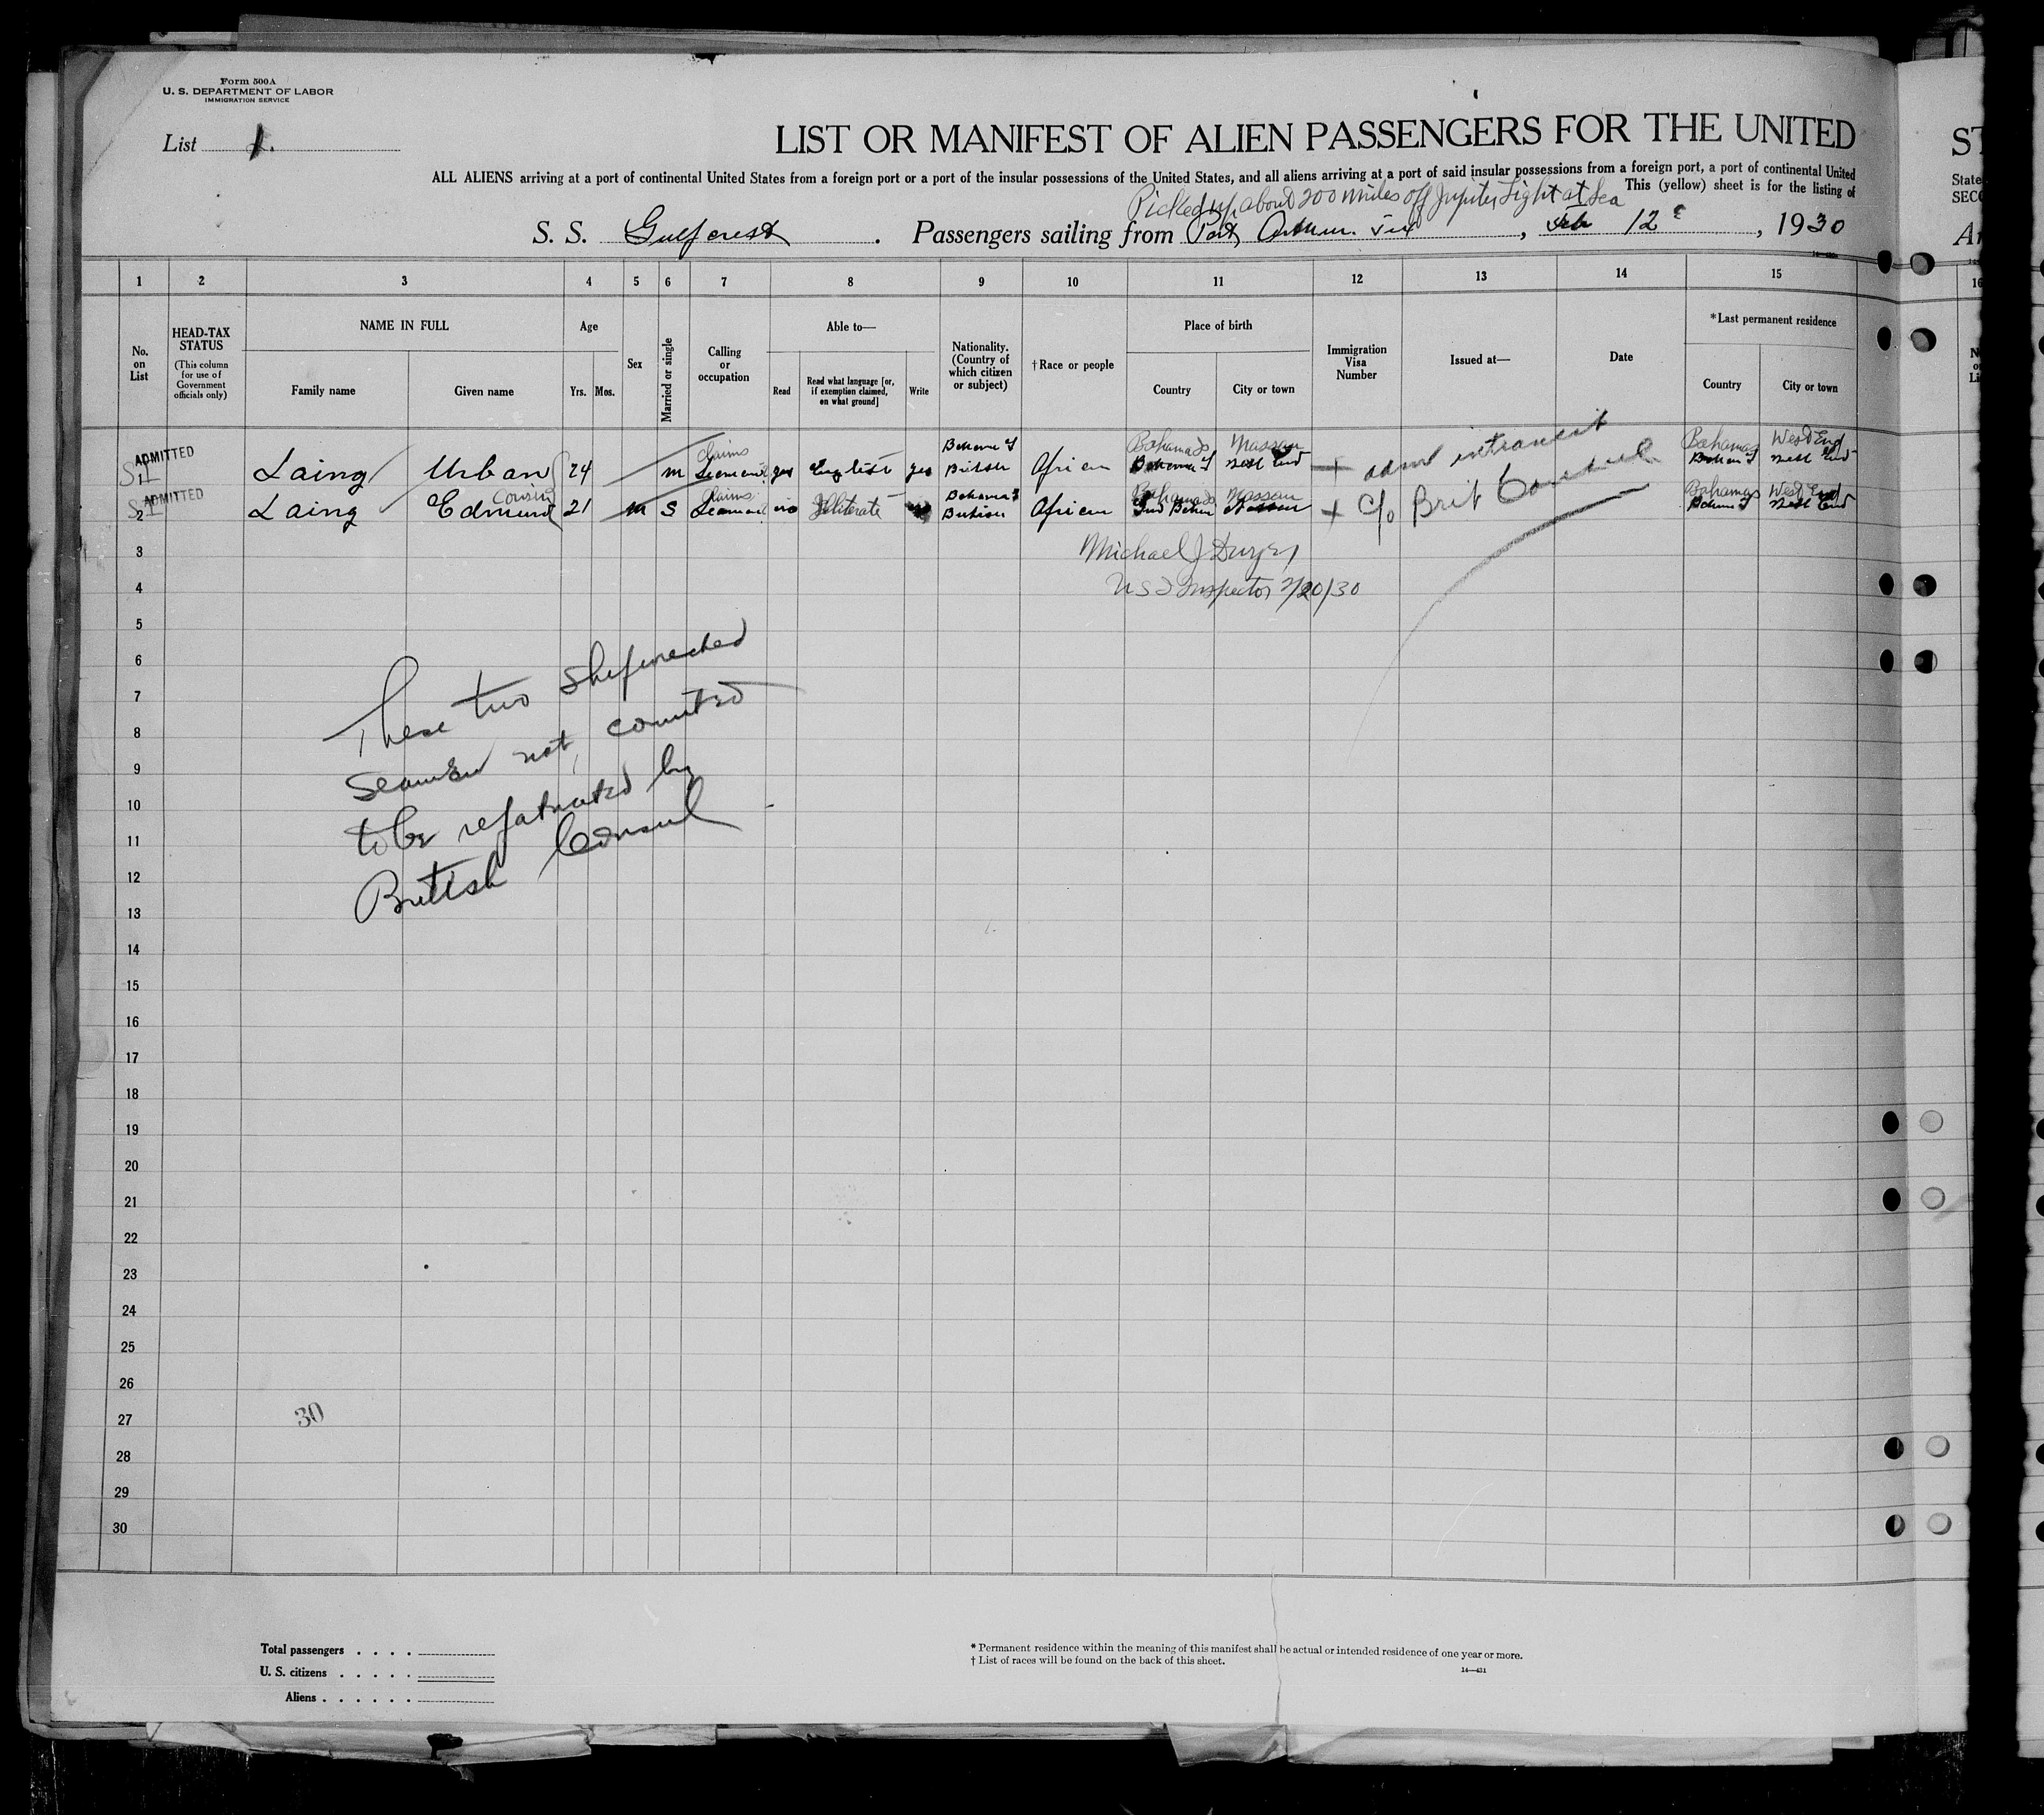 Form 500A
U. S. DEPARTMENT OF LABOR
IMMIGRATION SERVICE
List 1.
LIST OR MANIFEST OF ALIEN PASSENGERS FOR THE UNITED
ST
ALL ALIENS arriving at a port of continental United States from a foreign port or a part of the insular possessions of the United States, and all aliens arriving at a port of said insular possessions from a foreign port, a port of continental United
State
This (yellow) sheet is for the listing of
SECO
Picked up about 200 miles off Jupiter Light at Sea
S. S. Gulfcrest . Passengers sailing from Port Arthur Tex , Feb 12 , 1930
1 2 3 4 5 6 7 8 9 10 11 12 13 14 15 16
No. on List
HEAD-TAX STATUS
(This column for use of Government officials only)
NAME IN FULL
Family name
Given name
Age
Yrs.
Mos.
Sex
Married or single
Calling or occupation
Able to—
Read
Read what language [or, if exemption claimed, on what ground]
Write
Nationality. (Country of which citizen or subject)
†Race or people
Place of birth
Country
City or town
Immigration Visa Number
Issued at—
Date
*Last permanent residence
Country
City or town
ADMITTED
SI
1 Laing Urban 24 m claims Seaman yes English yes British African Bahamas Nassau + admit intransit Bahamas West End
ADMITTED
SI
2 Laing Edmund Cousin 21 m S claims Seaman no Illiterate British African Bahamas Nassau + c/o Brit Consul Bahamas West End
3
Michael J Dwyer
4
U S I Inspector 2/20/30
5
6
7
8
9
10
11
12
13
14
15
16
17
18
19
20
21
22
23
24
25
26
27
28
29
30
These two shipwrecked
seamen not counted
to be repatriated by
British Consul
30
Total passengers . . . .
U. S. citizens . . . . .
Aliens . . . . . .
* Permanent residence within the meaning of this manifest shall be actual or intended residence of one year or more.
† List of races will be found on the back of this sheet.
14—431